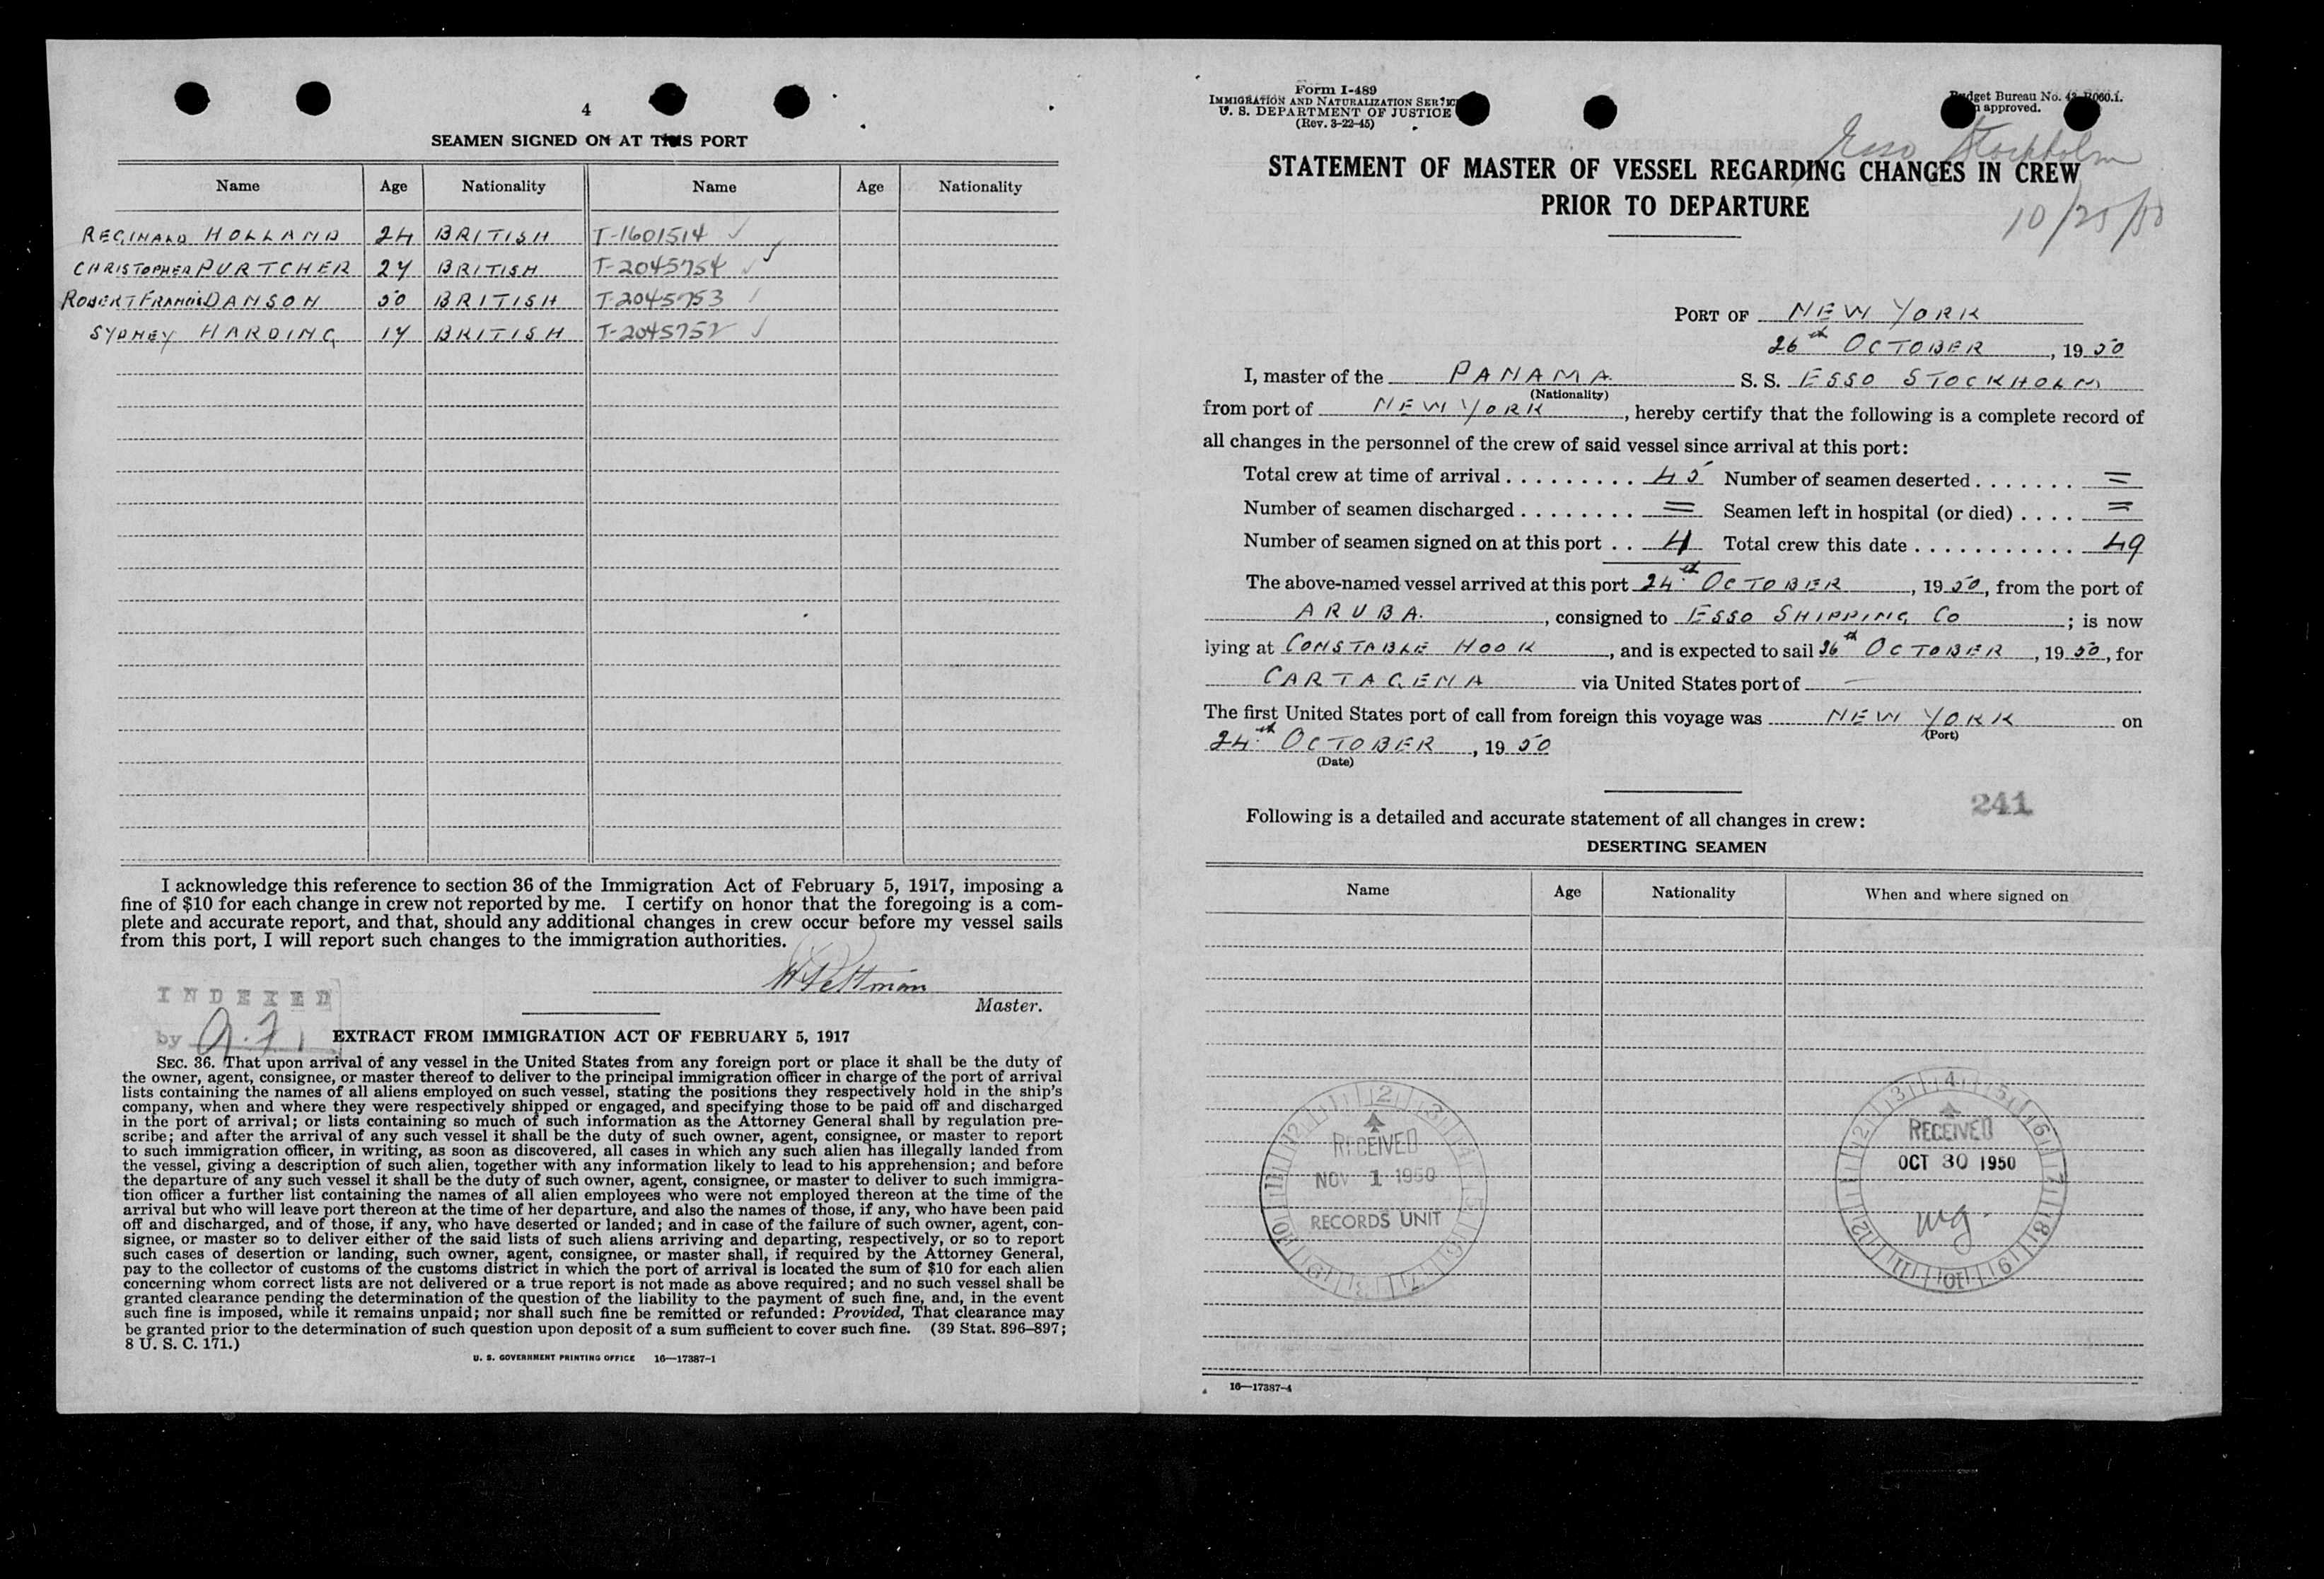 4
SEAMEN SIGNED ON AT THIS PORT
Name Age Nationality Name Age Nationality
REGINALD HOLLAND 24 BRITISH T-1601514
CHRISTOPHER PURTCHER 24 BRITISH T-2045754
ROBERT FRANCIS DAMSON 50 BRITISH T-2045753
SYDNEY HARDING 17 BRITISH T-2045752
I acknowledge this reference to section 36 of the Immigration Act of February 5, 1917, imposing a
fine of $10 for each change in crew not reported by me. I certify on honor that the foregoing is a com-
plete and accurate report, and that, should any additional changes in crew occur before my vessel sails
from this port, I will report such changes to the immigration authorities.
Master.
INDEXED
by
EXTRACT FROM IMMIGRATION ACT OF FEBRUARY 5, 1917
SEC. 36. That upon arrival of any vessel in the United States from any foreign port or place it shall be the duty of
the owner, agent, consignee, or master thereof to deliver to the principal immigration officer in charge of the port of arrival
lists containing the names of all aliens employed on such vessel, stating the positions they respectively hold in the ship's
company, when and where they were respectively shipped or engaged, and specifying those to be paid off and discharged
in the port of arrival; or lists containing so much of such information as the Attorney General shall by regulation pre-
scribe; and after the arrival of any such vessel it shall be the duty of such owner, agent, consignee, or master to report
to such immigration officer, in writing, as soon as discovered, all cases in which any such alien has illegally landed from
the vessel, giving a description of such alien, together with any information likely to lead to his apprehension; and before
the departure of any such vessel it shall be the duty of such owner, agent, consignee, or master to deliver to such immigra-
tion officer a further list containing the names of all alien employees who were not employed thereon at the time of the
arrival but who will leave port thereon at the time of her departure, and also the names of those, if any, who have been paid
off and discharged, and of those, if any, who have deserted or landed; and in case of the failure of such owner, agent, con-
signee, or master so to deliver either of the said lists of such aliens arriving and departing, respectively, or so to report
such cases of desertion or landing, such owner, agent, consignee, or master shall, if required by the Attorney General,
pay to the collector of customs of the customs district in which the port of arrival is located the sum of $10 for each alien
concerning whom correct lists are not delivered or a true report is not made as above required; and no such vessel shall be
granted clearance pending the determination of the question of the liability to the payment of such fine, and, in the event
such fine is imposed, while it remains unpaid; nor shall such fine be remitted or refunded: Provided, That clearance may
be granted prior to the determination of such question upon deposit of a sum sufficient to cover such fine. (39 Stat. 896–897;
8 U. S. C. 171.)
U. S. GOVERNMENT PRINTING OFFICE 16—17387-1
Form I-489
IMMIGRATION AND NATURALIZATION SERVICE
U. S. DEPARTMENT OF JUSTICE
(Rev. 3-22-45)
Budget Bureau No. 43-R060.1.
approved.
Esso Stockholm
STATEMENT OF MASTER OF VESSEL REGARDING CHANGES IN CREW
PRIOR TO DEPARTURE
10/25/50
PORT OF NEW YORK
26th OCTOBER, 1950
I, master of the PANAMA S. S. ESSO STOCKHOLM
(Nationality)
from port of NEW YORK, hereby certify that the following is a complete record of
all changes in the personnel of the crew of said vessel since arrival at this port:
Total crew at time of arrival . . . . . . . . . . 45 Number of seamen deserted . . . . . . . =
Number of seamen discharged . . . . . . . . = Seamen left in hospital (or died) . . . . =
Number of seamen signed on at this port . . 4 Total crew this date . . . . . . . . . . . . 49
The above-named vessel arrived at this port 24th OCTOBER, 1950, from the port of
ARUBA., consigned to ESSO SHIPPING CO; is now
lying at CONSTABLE HOOK, and is expected to sail 26th OCTOBER, 1950, for
CARTAGENA via United States port of —
The first United States port of call from foreign this voyage was NEW YORK on
(Port)
24th OCTOBER, 1950
(Date)
241
Following is a detailed and accurate statement of all changes in crew:
DESERTING SEAMEN
Name Age Nationality When and where signed on
RECEIVED
NOV 1 1950
RECORDS UNIT
RECEIVED
OCT 30 1950
mg.
16—17387-4